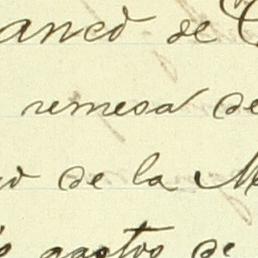 anco de
remesa de
de la
gastos de